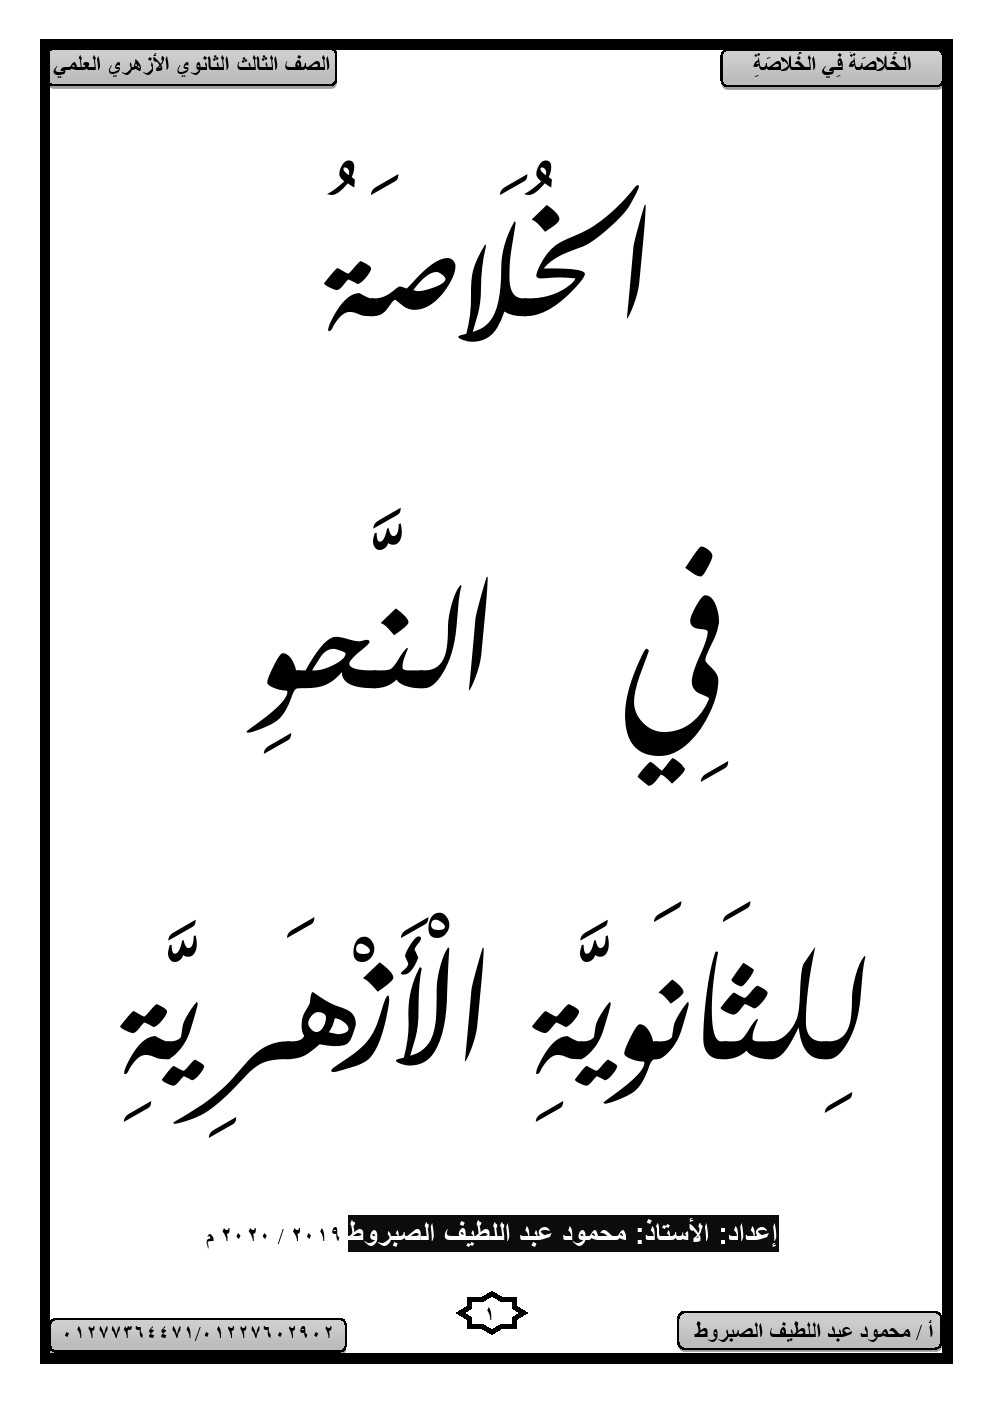 الخُلاصَةَ فِي الخُلاصَةِ
الصف الثالث الثانوي الأزهري العلمي
الخُلَاصَةُ
فِي النَّحوِ
لِلثَانَوِيَّةِ الْأَزْهَرِيَّةِ
إعداد: الأستاذ: محمود عبد اللطيف الصبروط ٢٠١٩ / ٢٠٢٠ م
١
أ / محمود عبد اللطيف الصبروط
٠١٢٧٧٣٦٤٤٧١/٠١٢٢٧٦٠٢٩٠٢